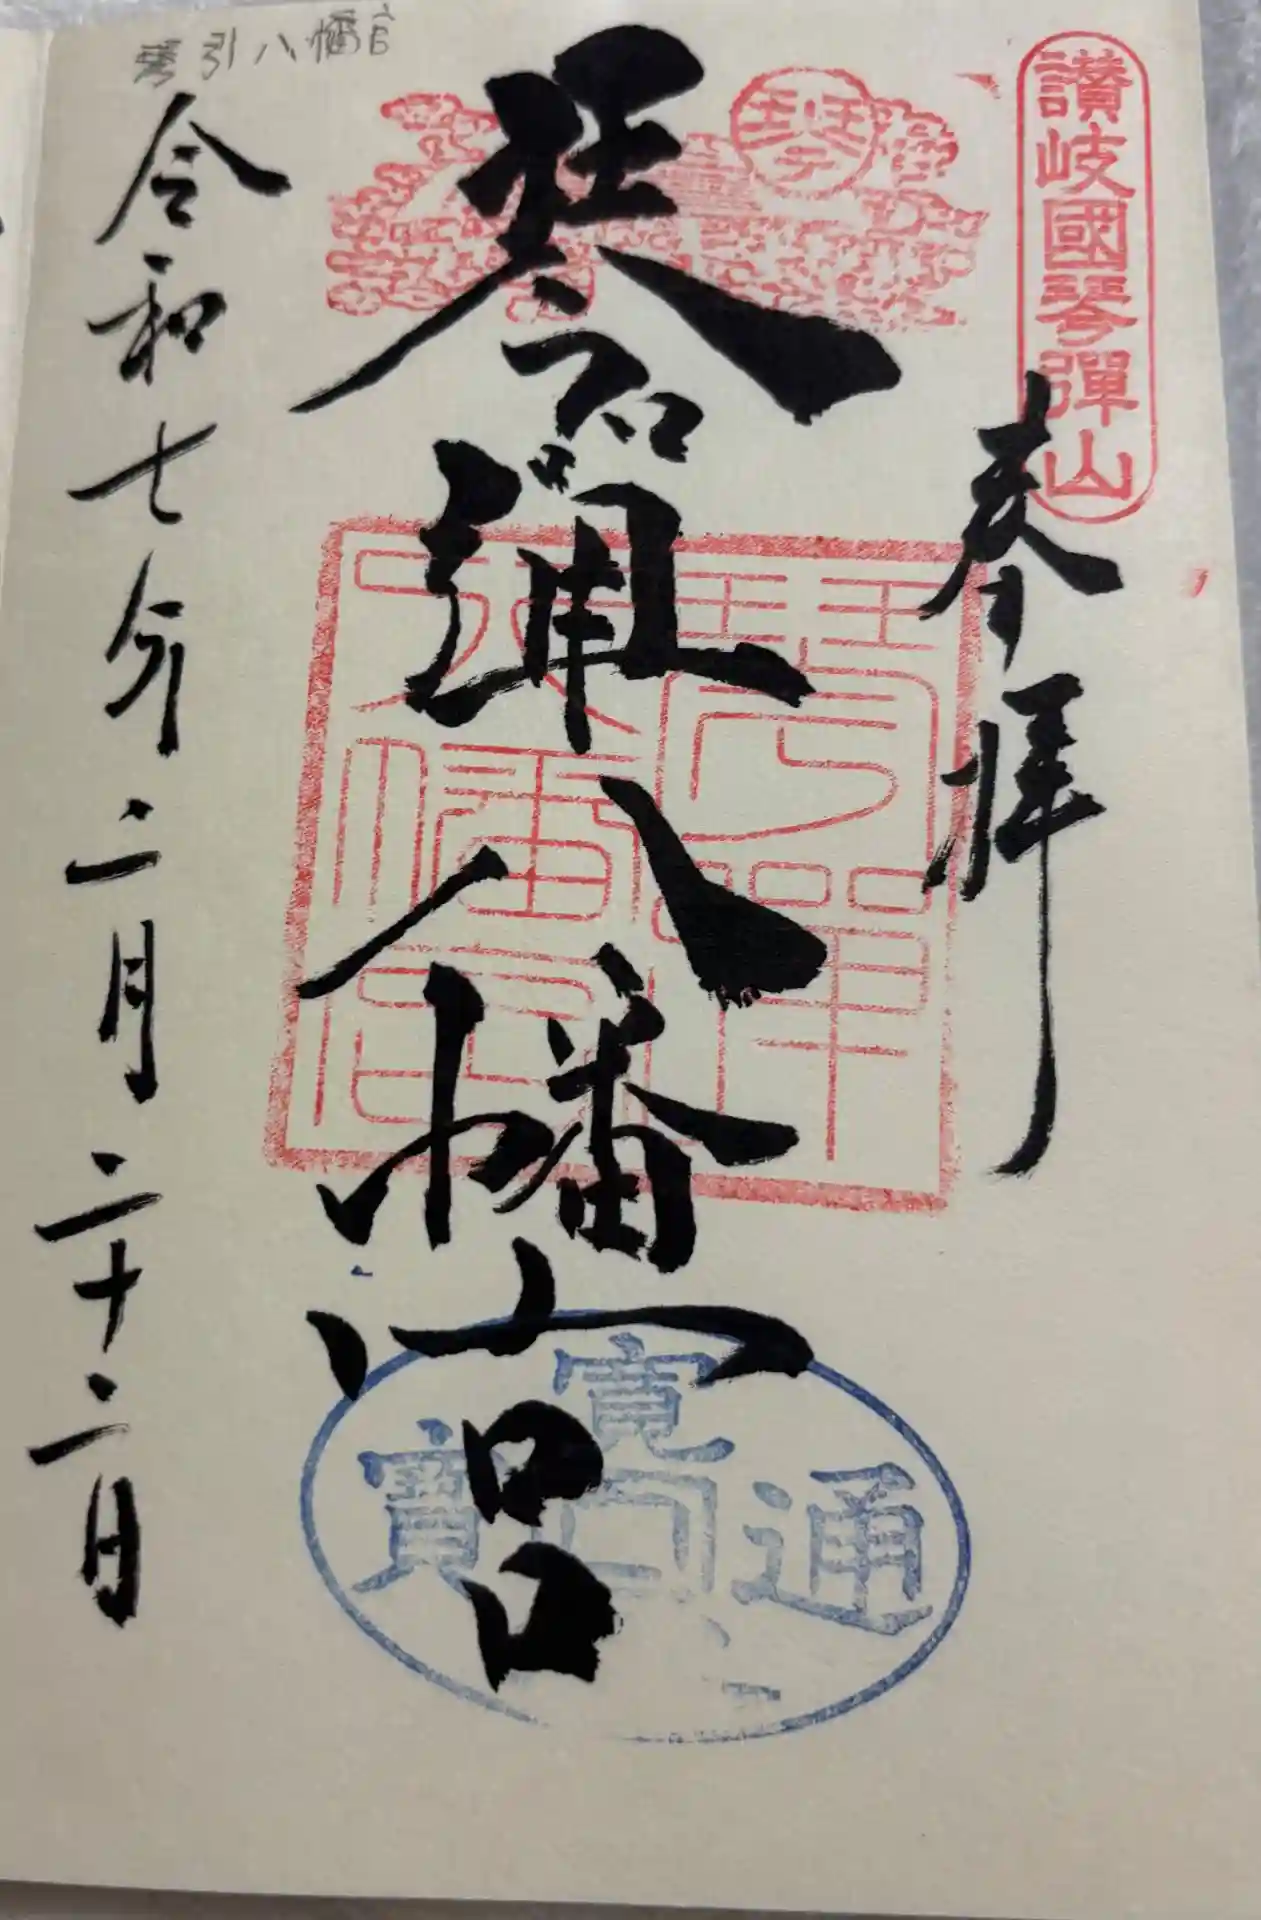 讃岐國琴彈山
奉拝
琴
琴弾八幡宮
琴彈八幡宮
寛通寶
令和七年二月二十二日
琴引八幡官